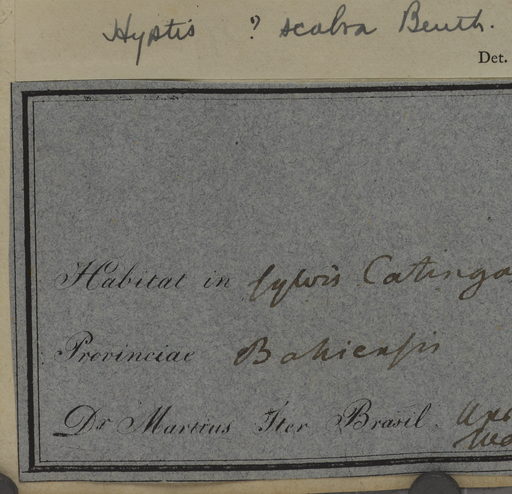 Hyptis ? scabra Benth.
Det.
Habitat in sylvis Catinga
Provinciae Bahiensis
Dr Martius Iter Brasil.